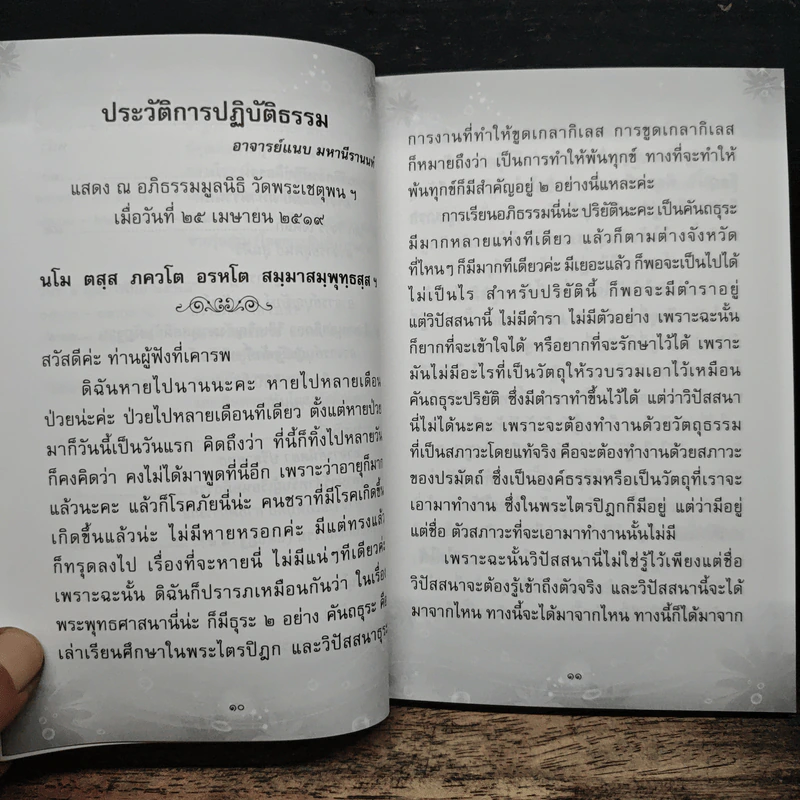 ประวัติการปฏิบัติธรรม
อาจารย์แนบ มหานีรานนท์
แสดง ณ อภิธรรมมูลนิธิ วัดพระเชตุพน ฯ
เมื่อวันที่ ๒๕ เมษายน ๒๕๑๙
นโม ตสฺส ภควโต อรหโต สมฺมาสมฺพุทฺธสฺส ฯ
สวัสดีค่ะ ท่านผู้ฟังที่เคารพ
ดิฉันหายไปนานนะคะ หายไปหลายเดือน
ป่วยน่ะค่ะ ป่วยไปหลายเดือนทีเดียว ตั้งแต่หายป่วย
มาก็วันนี้เป็นวันแรก คิดถึงว่า ที่นี้ก็ทิ้งไปหลายวัน
ก็คงคิดว่า คงไม่ได้มาพูดที่นี่อีก เพราะว่าอายุก็มาก
แล้วนะคะ แล้วก็โรคภัยนี่น่ะ คนชราที่มีโรคเกิดขึ้น
เกิดขึ้นแล้วน่ะ ไม่มีหายหรอกค่ะ มีแต่ทรงแล้ว
ก็ทรุดลงไป เรื่องที่จะหายนี่ ไม่มีแน่ๆทีเดียวค่ะ
เพราะฉะนั้น ดิฉันก็ปรารภเหมือนกันว่า ในเรื่อง
พระพุทธศาสนานี่น่ะ ก็มีธุระ ๒ อย่าง คันถธุระ คือ
เล่าเรียนศึกษาในพระไตรปิฎก และวิปัสสนาธุระ
๑๐
การงานที่ทำให้ขูดเกลากิเลส การขูดเกลากิเลส
ก็หมายถึงว่า เป็นการทำให้พ้นทุกข์ ทางที่จะทำให้
พ้นทุกข์ก็มีสำคัญอยู่ ๒ อย่างนี่แหละค่ะ
การเรียนอภิธรรมนี่น่ะ ปริยัตินะคะ เป็นคันถธุระ
มีมากหลายแห่งทีเดียว แล้วก็ตามต่างจังหวัด
ที่ไหนๆ ก็มีมากทีเดียวค่ะ มีเยอะแล้ว ก็พอจะเป็นไปได้
ไม่เป็นไร สำหรับปริยัตินี้ ก็พอจะมีตำราอยู่
แต่วิปัสสนานี้ ไม่มีตำรา ไม่มีตัวอย่าง เพราะฉะนั้น
ก็ยากที่จะเข้าใจได้ หรือยากที่จะรักษาไว้ได้ เพราะ
มันไม่มีอะไรที่เป็นวัตถุให้รวบรวมเอาไว้เหมือน
คันถธุระปริยัติ ซึ่งมีตำราทำขึ้นไว้ได้ แต่ว่าวิปัสสนา
นี่ไม่ได้นะคะ เพราะจะต้องทำงานด้วยวัตถุธรรม
ที่เป็นสภาวะโดยแท้จริง คือจะต้องทำงานด้วยสภาวะ
ของปรมัตถ์ ซึ่งเป็นองค์ธรรมหรือเป็นวัตถุที่เราจะ
เอามาทำงาน ซึ่งในพระไตรปิฎกก็มีอยู่ แต่ว่ามีอยู่
แต่ชื่อ ตัวสภาวะที่จะเอามาทำงานนั้นไม่มี
เพราะฉะนั้นวิปัสสนานี่ไม่ใช่รู้ไว้เพียงแต่ชื่อ
วิปัสสนาจะต้องรู้เข้าถึงตัวจริง และวิปัสสนานี้จะได้
มาจากไหน ทางนี้จะได้มาจากไหน ทางนี้ก็ได้มาจาก
๑๑